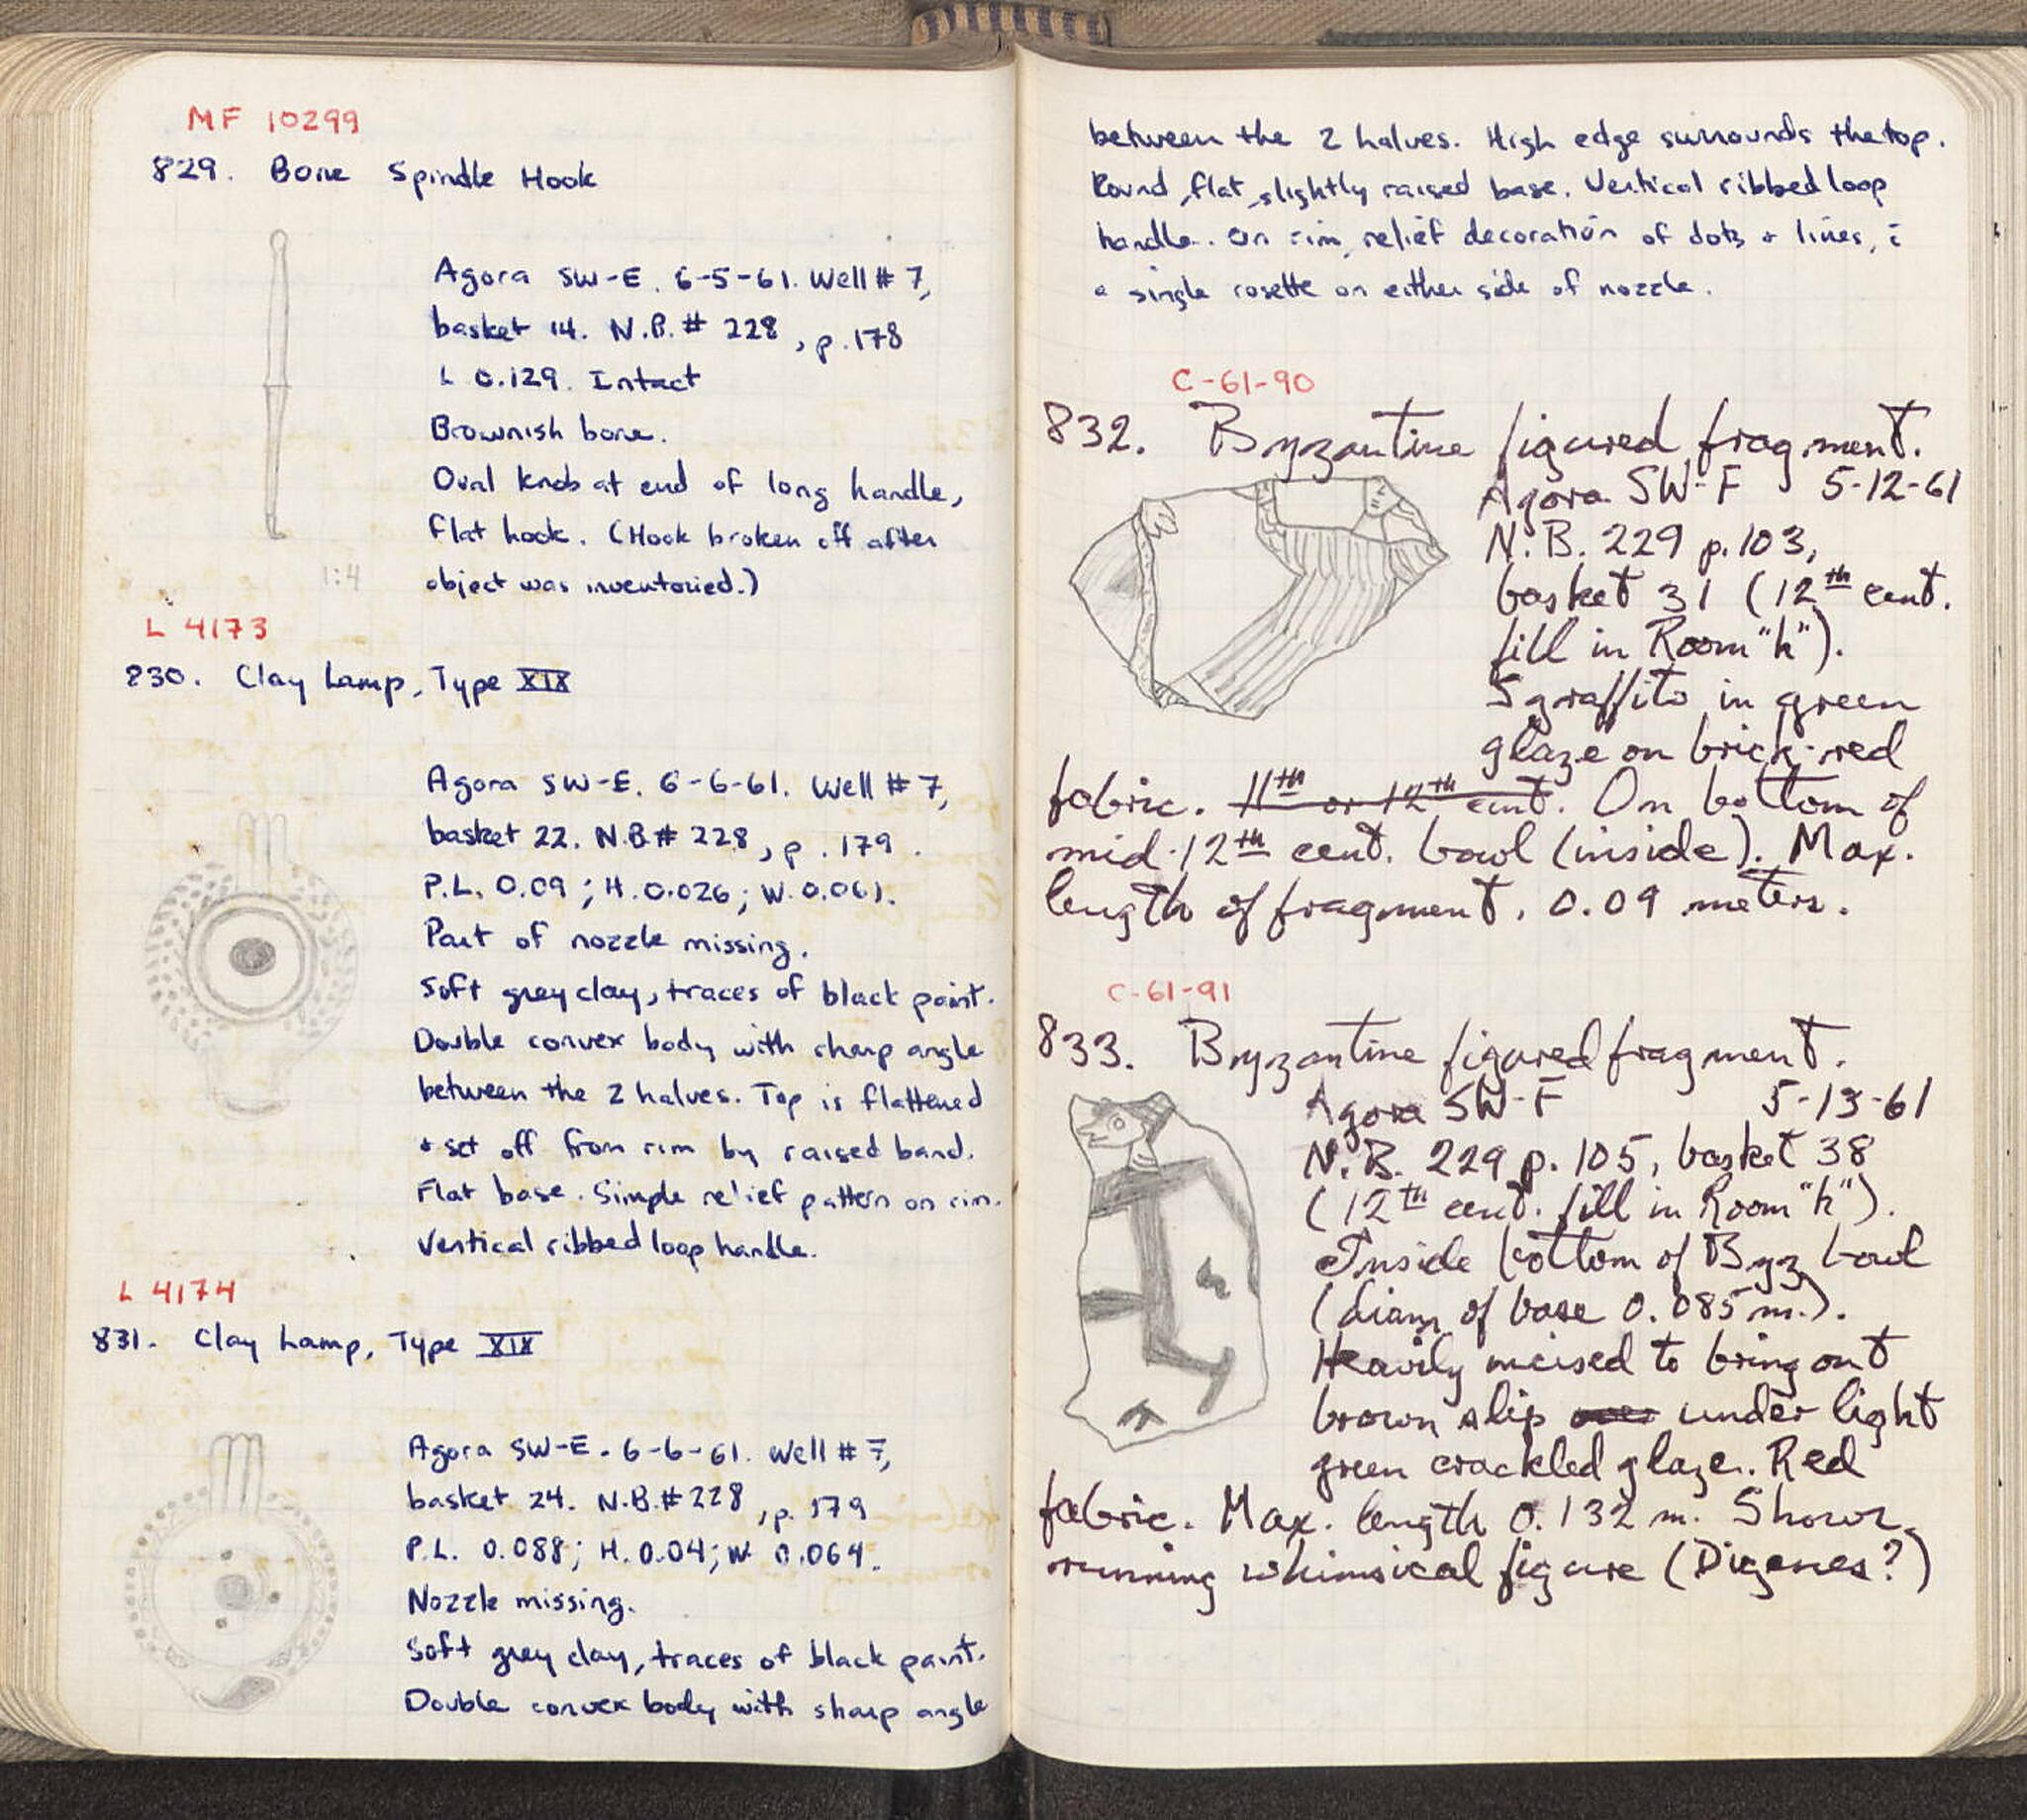 MF 10299
829. Bone Spindle Hook
Agora SW-E. 6-5-61. Well # 7,
basket 14. N.B. # 228, p. 178
L 0.129. Intact
Brownish bone.
Oval knob at end of long handle,
flat hook. (Hook broken off after
object was inventoried.)
1:4
L 4173
830. Clay Lamp, Type XIX
Agora SW-E. 6-6-61. Well # 7,
basket 22. N.B.# 228, p. 179.
P.L. 0.09; H. 0.026; W. 0.061.
Part of nozzle missing.
Soft grey clay, traces of black paint.
Double convex body with sharp angle
between the 2 halves. Top is flattened
+ set off from rim by raised band.
Flat base. Simple relief pattern on rim.
Vertical ribbed loop handle.
L 4174
831. Clay Lamp, Type XIX
Agora SW-E. 6-6-61. Well # 7,
basket 24. N.B.# 228, p. 179
P.L. 0.088; H. 0.04; W 0.064.
Nozzle missing.
Soft grey clay, traces of black paint.
Double convex body with sharp angle
between the 2 halves. High edge surrounds the top.
Round, flat, slightly raised base. Vertical ribbed loop
handle. On rim, relief decoration of dots + lines, c̄
a single rosette on either side of nozzle.
C-61-90
832. Byzantine figured fragment.
Agora SW-F 5-12-61
N.B. 229 p. 103,
basket 31 (12th cent.
fill in Room "h").
Sgraffito in green
glaze on brick-red
fabric. 11th or 12th cent. On bottom of
mid-12th cent. bowl (inside). Max.
length of fragment, 0.09 meters.
C-61-91
833. Byzantine figured fragment.
Agora SW-F 5-13-61
N.B. 229 p. 105, basket 38
(12th cent. fill in Room "h").
Inside bottom of Byz bowl
(diam of base 0.085 m.).
Heavily incised to bring out
brown slip over under light
green crackled glaze. Red
fabric. Max. length 0.132 m. Shows
running whimsical figure (Digenes?)